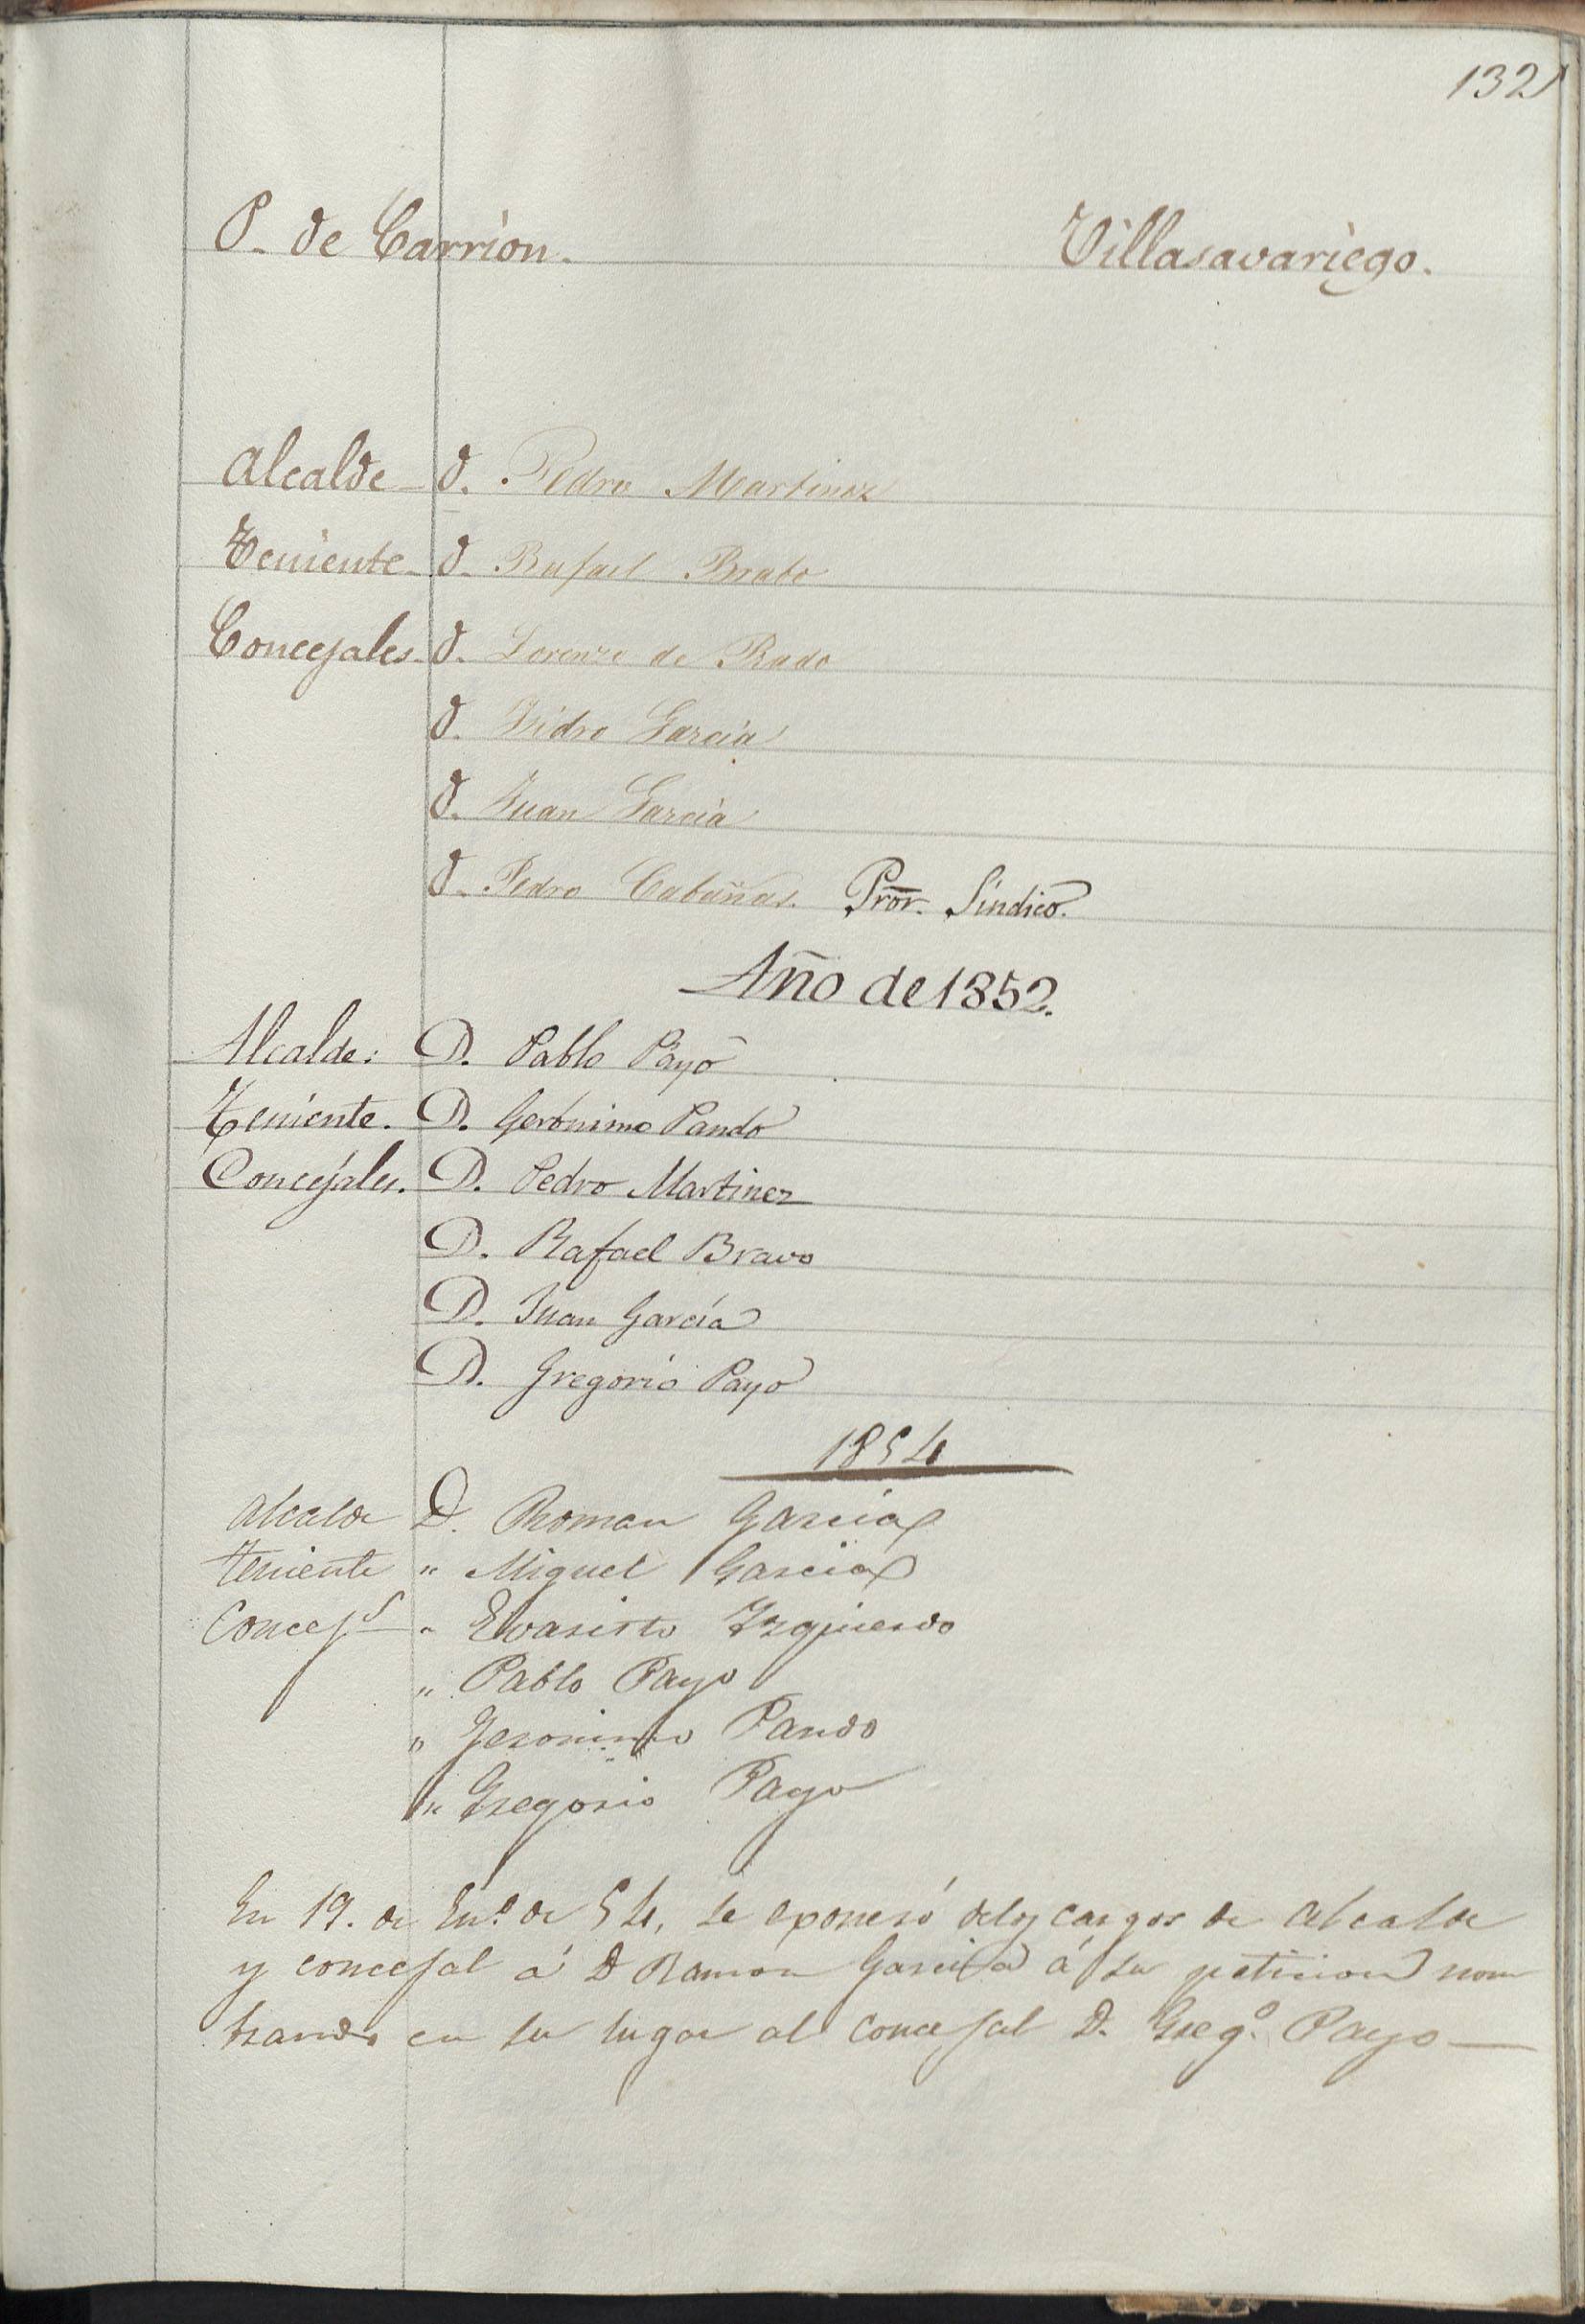 132
P. de Carrion. Villasavariego.
Alcalde D. Pedro Martinez
Teniente D. Rafael Brabo
Concejales. D. Lorenzo de Prado
D. Ysidro Garcia
D. Juan Garcia
D. Pedro Cabañas. Pror. Sindico.
Año de 1852.
Alcalde: D. Pablo Payo
Teniente. D. Gerónimo Pando
Concejales. D. Pedro Martinez
D. Rafael Bravo
D. Juan García
D. Gregorio Payo
1854
Alcalde D. Roman Garcia
Teniente " Miguel Garcia
Concejs " Evaristo Yzquierdo
" Pablo Payo
" Jeronimo Pando
" Gregorio Payo
En 19. de En.º de 54, se exoneró delos cargos de Alcalde
y concejal á D Ramon Garcia á su peticion nom
brando en su lugar al concejal D. Greg.º Payo